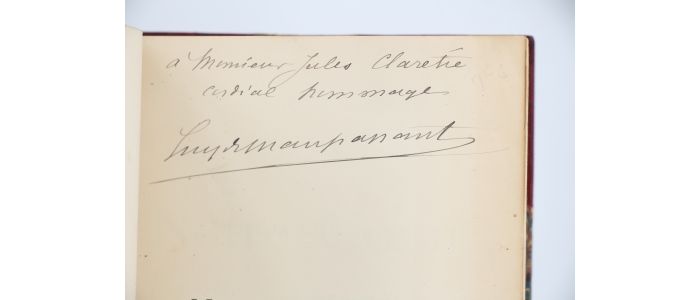 à Monsieur Jules Claretie
cordial hommage
Guy de Maupassant